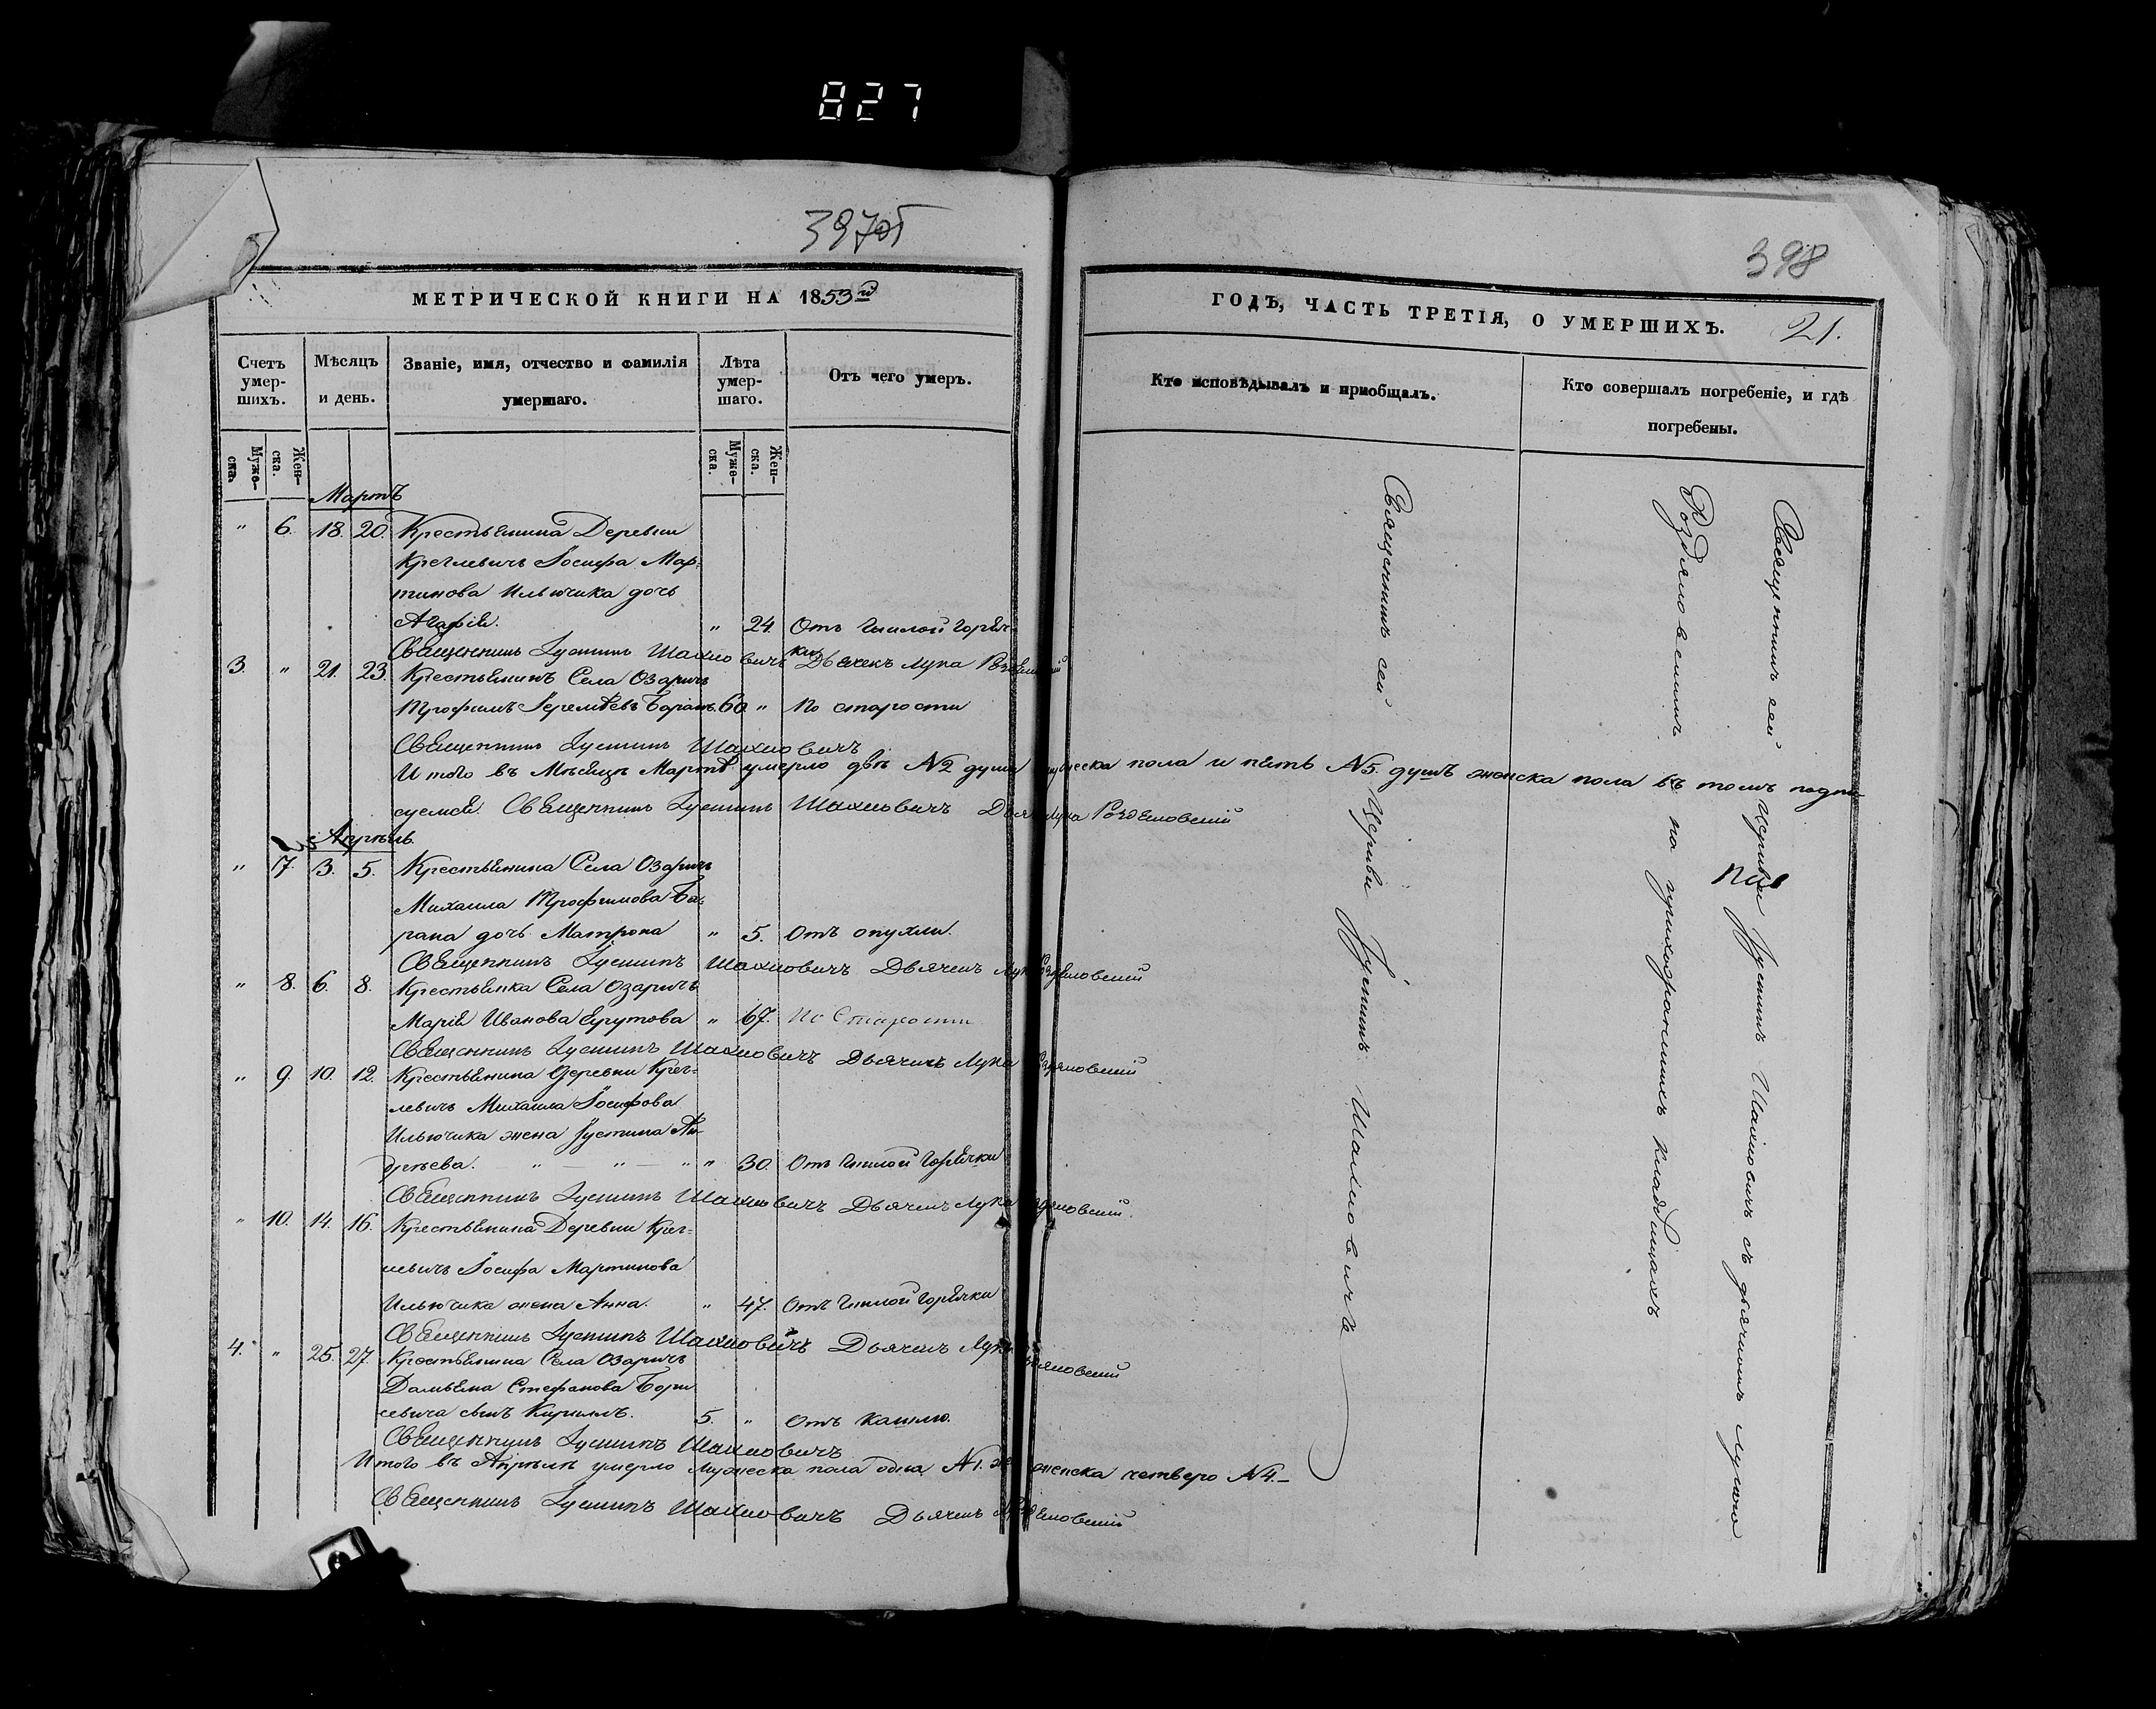 827
397об
398
МЕТРИЧЕСКОЙ КНИГИ НА 1853й
ГОДЪ, ЧАСТЬ ТРЕТІЯ, О УМЕРШИХЪ.
21.
Счетъ умер-шихъ.
Мѣсяцъ и день.
Званіе, имя, отчество и фамилія умершаго.
Лѣта умер-шаго.
Отъ чего умеръ.
Кто исповѣдывалъ и пріобщалъ.
Кто совершалъ погребеніе, и гдѣ погребены.
Муже-ска.
Жен-ска.
Муже-ска.
Жен-ска.
Мартъ
" 6. 18. 20. Крестьянина Деревни
Креглевичъ Іосифа Мар-
тинова Ильючика дочь
Агафія. " 24. Отъ гнилой горяч-
ки
Священникъ Іустинъ Шахновичъ Дьячекъ Лука
3. " 21. 23. Крестьянинъ Села Озаричъ
Трофимъ Іеремѣевъ Баранъ. 60 " По старости
Священникъ Іустинъ Шахновичъ
Итого въ Мѣсяцѣ Мартѣ умерло двѣ №2 души мужеска пола и пять №5. душъ женска пола въ томъ подпи-
суемся. Священникъ Іустинъ Шахновичъ Дьячекъ Лука Роздяловскій
Апрѣль
" 7. 3. 5. Крестьянина Села Озаричъ
Михаила Трофимова Ба-
рана дочь Матрона " 5. Отъ опухли.
Священникъ Іустинъ Шахновичъ Дьячекъ Лука Роздяловскій
" 8. 6. 8. Крестьянка Села Озаричъ
Марія Иванова " 67. По Старости
Священникъ Іустинъ Шахновичъ Дьячекъ Лука Роздяловскій
" 9. 10. 12. Крестьянина Деревни Крег-
левичъ Михаила Іосифова
Ильючика жена Іустина Ан-
дрѣева. " " " " 30. Отъ гнилой горячки
Священникъ Іустинъ Шахновичъ Дьячекъ Лука Роздяловскій.
" 10. 14. 16. Крестьянина Деревни Крег-
левичъ Іосифа Мартинова
Ильючика жена Анна. " 47. Отъ гнилой горячки
Священникъ Іустинъ Шахновичъ Дьячекъ Лука Роздяловскій
4. " 25. 27. Крестьянина Села Озаричъ
Дамьяна Стефанова Бори
севича сынъ Кириллъ. 5. " Отъ кашлю.
Священникъ Іустинъ Шахновичъ
Итого въ Апрѣлѣ умерло мужеска пола одна №1. женска четверо №4.
Священникъ Іустинъ Шахновичъ Дьячекъ Роздяловскій
Священникъ сей Церкви Іустинъ Шахновичъ
Священникъ сей Церкви Іустинъ Шахновичъ съ дьячкомъ Лукою
Роздяловскимъ на приходскомъ кладбищахъ